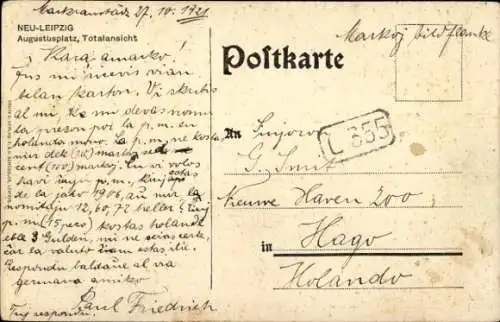 Markranstädt 27. 10. 1921
NEU-LEIPZIG
Augustusplatz, Totalansicht
Kara amarko!
Ĵus mi ricevis vian
belan karton. Vi skribis
al mi, ke mi devas nomi
la prezon por la p. m. en
holanda mono. La p. m. ne kostas
nur dek (10) markojn sed
cent (100) markoj. Ĉu vi volos
havi tiujn p. m., kiuj estas
de la jaro 1906, aŭ nur la
nomitajn 12, 60, 72 heller? Tiuj
p. m. (15 peco) kostas holande
eble 3 Gulden, mi ne scias certe,
ĉar la valuto estas
Respondu baldaŭ al via
germana amiko
Paul Friedrich
Tuj respondu.
Postkarte
Markoj bildflanke
L 355
An Sinjoro
G. Smit
Nieuwe Haven 200
in Hago
Holando